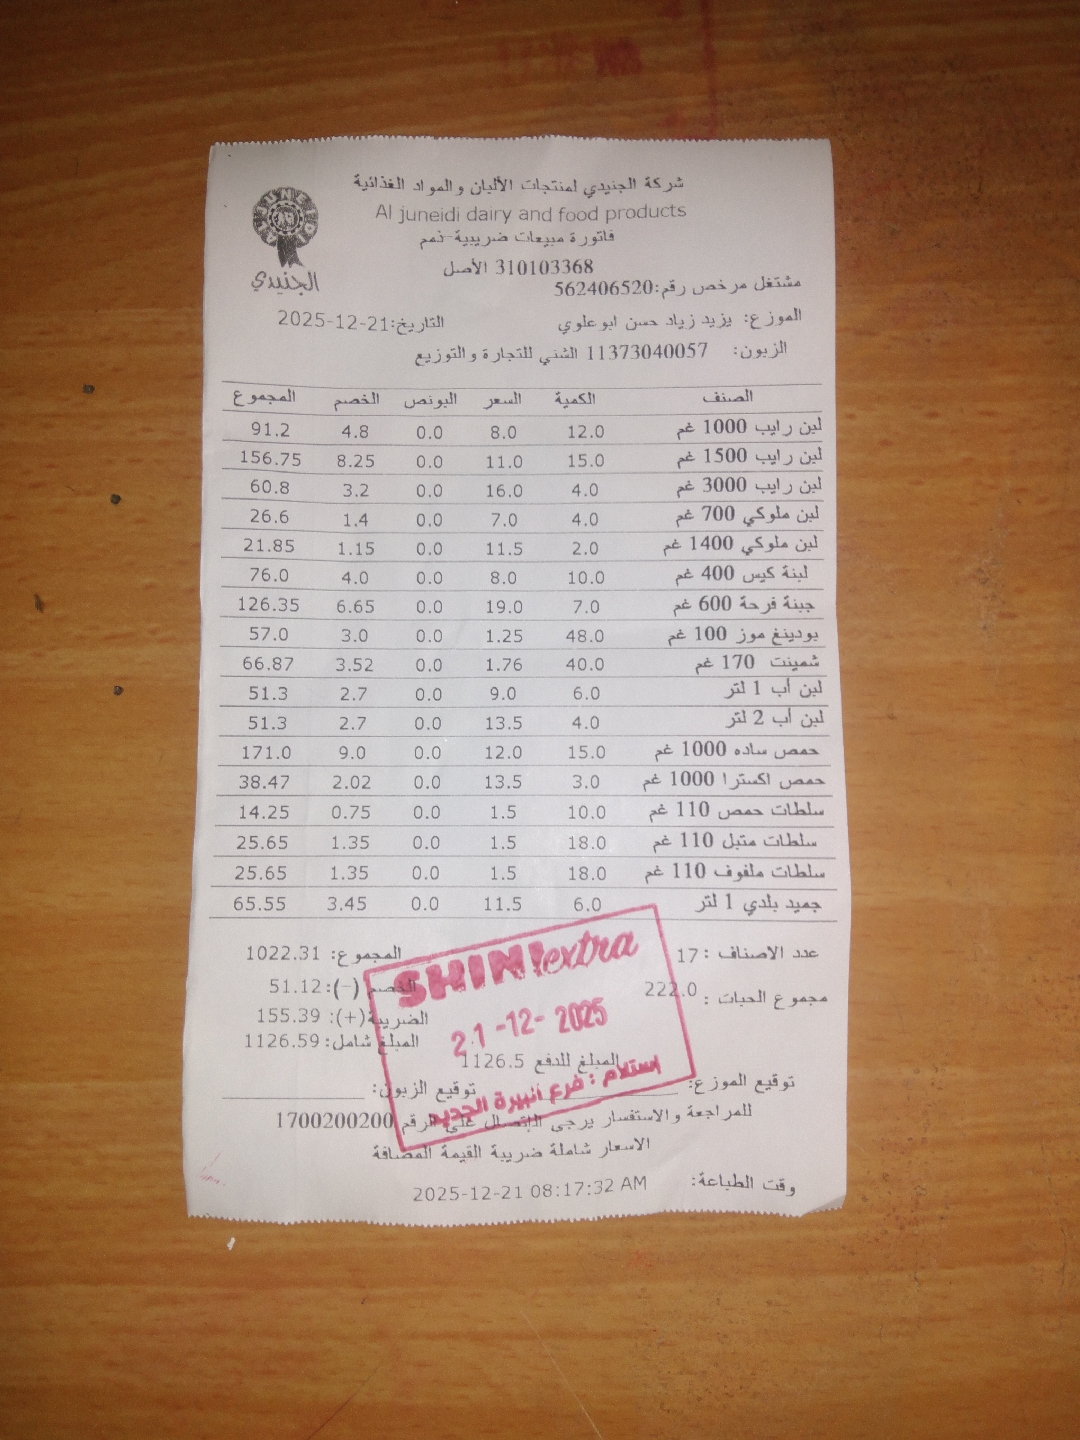 شركة الجنيدي لمنتجات الألبان والمواد الغذائية
Al juneidi dairy and food products
فاتورة مبيعات ضريبية-ذمم
310103368 الأصل
AL JUNEIDI
الجنيدي
مشتغل مرخص رقم:562406520
الموزع: يزيد زياد حسن ابوعلوي التاريخ:2025-12-21
الزبون: 11373040057 الشني للتجارة والتوزيع
الصنف الكمية السعر البونص الخصم المجموع
لبن رايب 1000 غم 12.0 8.0 0.0 4.8 91.2
لبن رايب 1500 غم 15.0 11.0 0.0 8.25 156.75
لبن رايب 3000 غم 4.0 16.0 0.0 3.2 60.8
لبن ملوكي 700 غم 4.0 7.0 0.0 1.4 26.6
لبن ملوكي 1400 غم 2.0 11.5 0.0 1.15 21.85
لبنة كيس 400 غم 10.0 8.0 0.0 4.0 76.0
جبنة فرحة 600 غم 7.0 19.0 0.0 6.65 126.35
بودينغ موز 100 غم 48.0 1.25 0.0 3.0 57.0
شمينت 170 غم 40.0 1.76 0.0 3.52 66.87
لبن أب 1 لتر 6.0 9.0 0.0 2.7 51.3
لبن أب 2 لتر 4.0 13.5 0.0 2.7 51.3
حمص ساده 1000 غم 15.0 12.0 0.0 9.0 171.0
حمص اكسترا 1000 غم 3.0 13.5 0.0 2.02 38.47
سلطات حمص 110 غم 10.0 1.5 0.0 0.75 14.25
سلطات متبل 110 غم 18.0 1.5 0.0 1.35 25.65
سلطات ملفوف 110 غم 18.0 1.5 0.0 1.35 25.65
جميد بلدي 1 لتر 6.0 11.5 0.0 3.45 65.55
عدد الاصناف : 17 المجموع: 1022.31
مجموع الحبات : 222.0 الخصم (-): 51.12
الضريبة(+): 155.39
المبلغ شامل: 1126.59
المبلغ للدفع 1126.5
SHINI extra
21-12-2025
استلام : فرع انبيرة الجديد
توقيع الموزع: توقيع الزبون:
للمراجعة والاستفسار يرجى الاتصال على الرقم 1700200200
الاسعار شاملة ضريبة القيمة المضافة
وقت الطباعة: 2025-12-21 08:17:32 AM